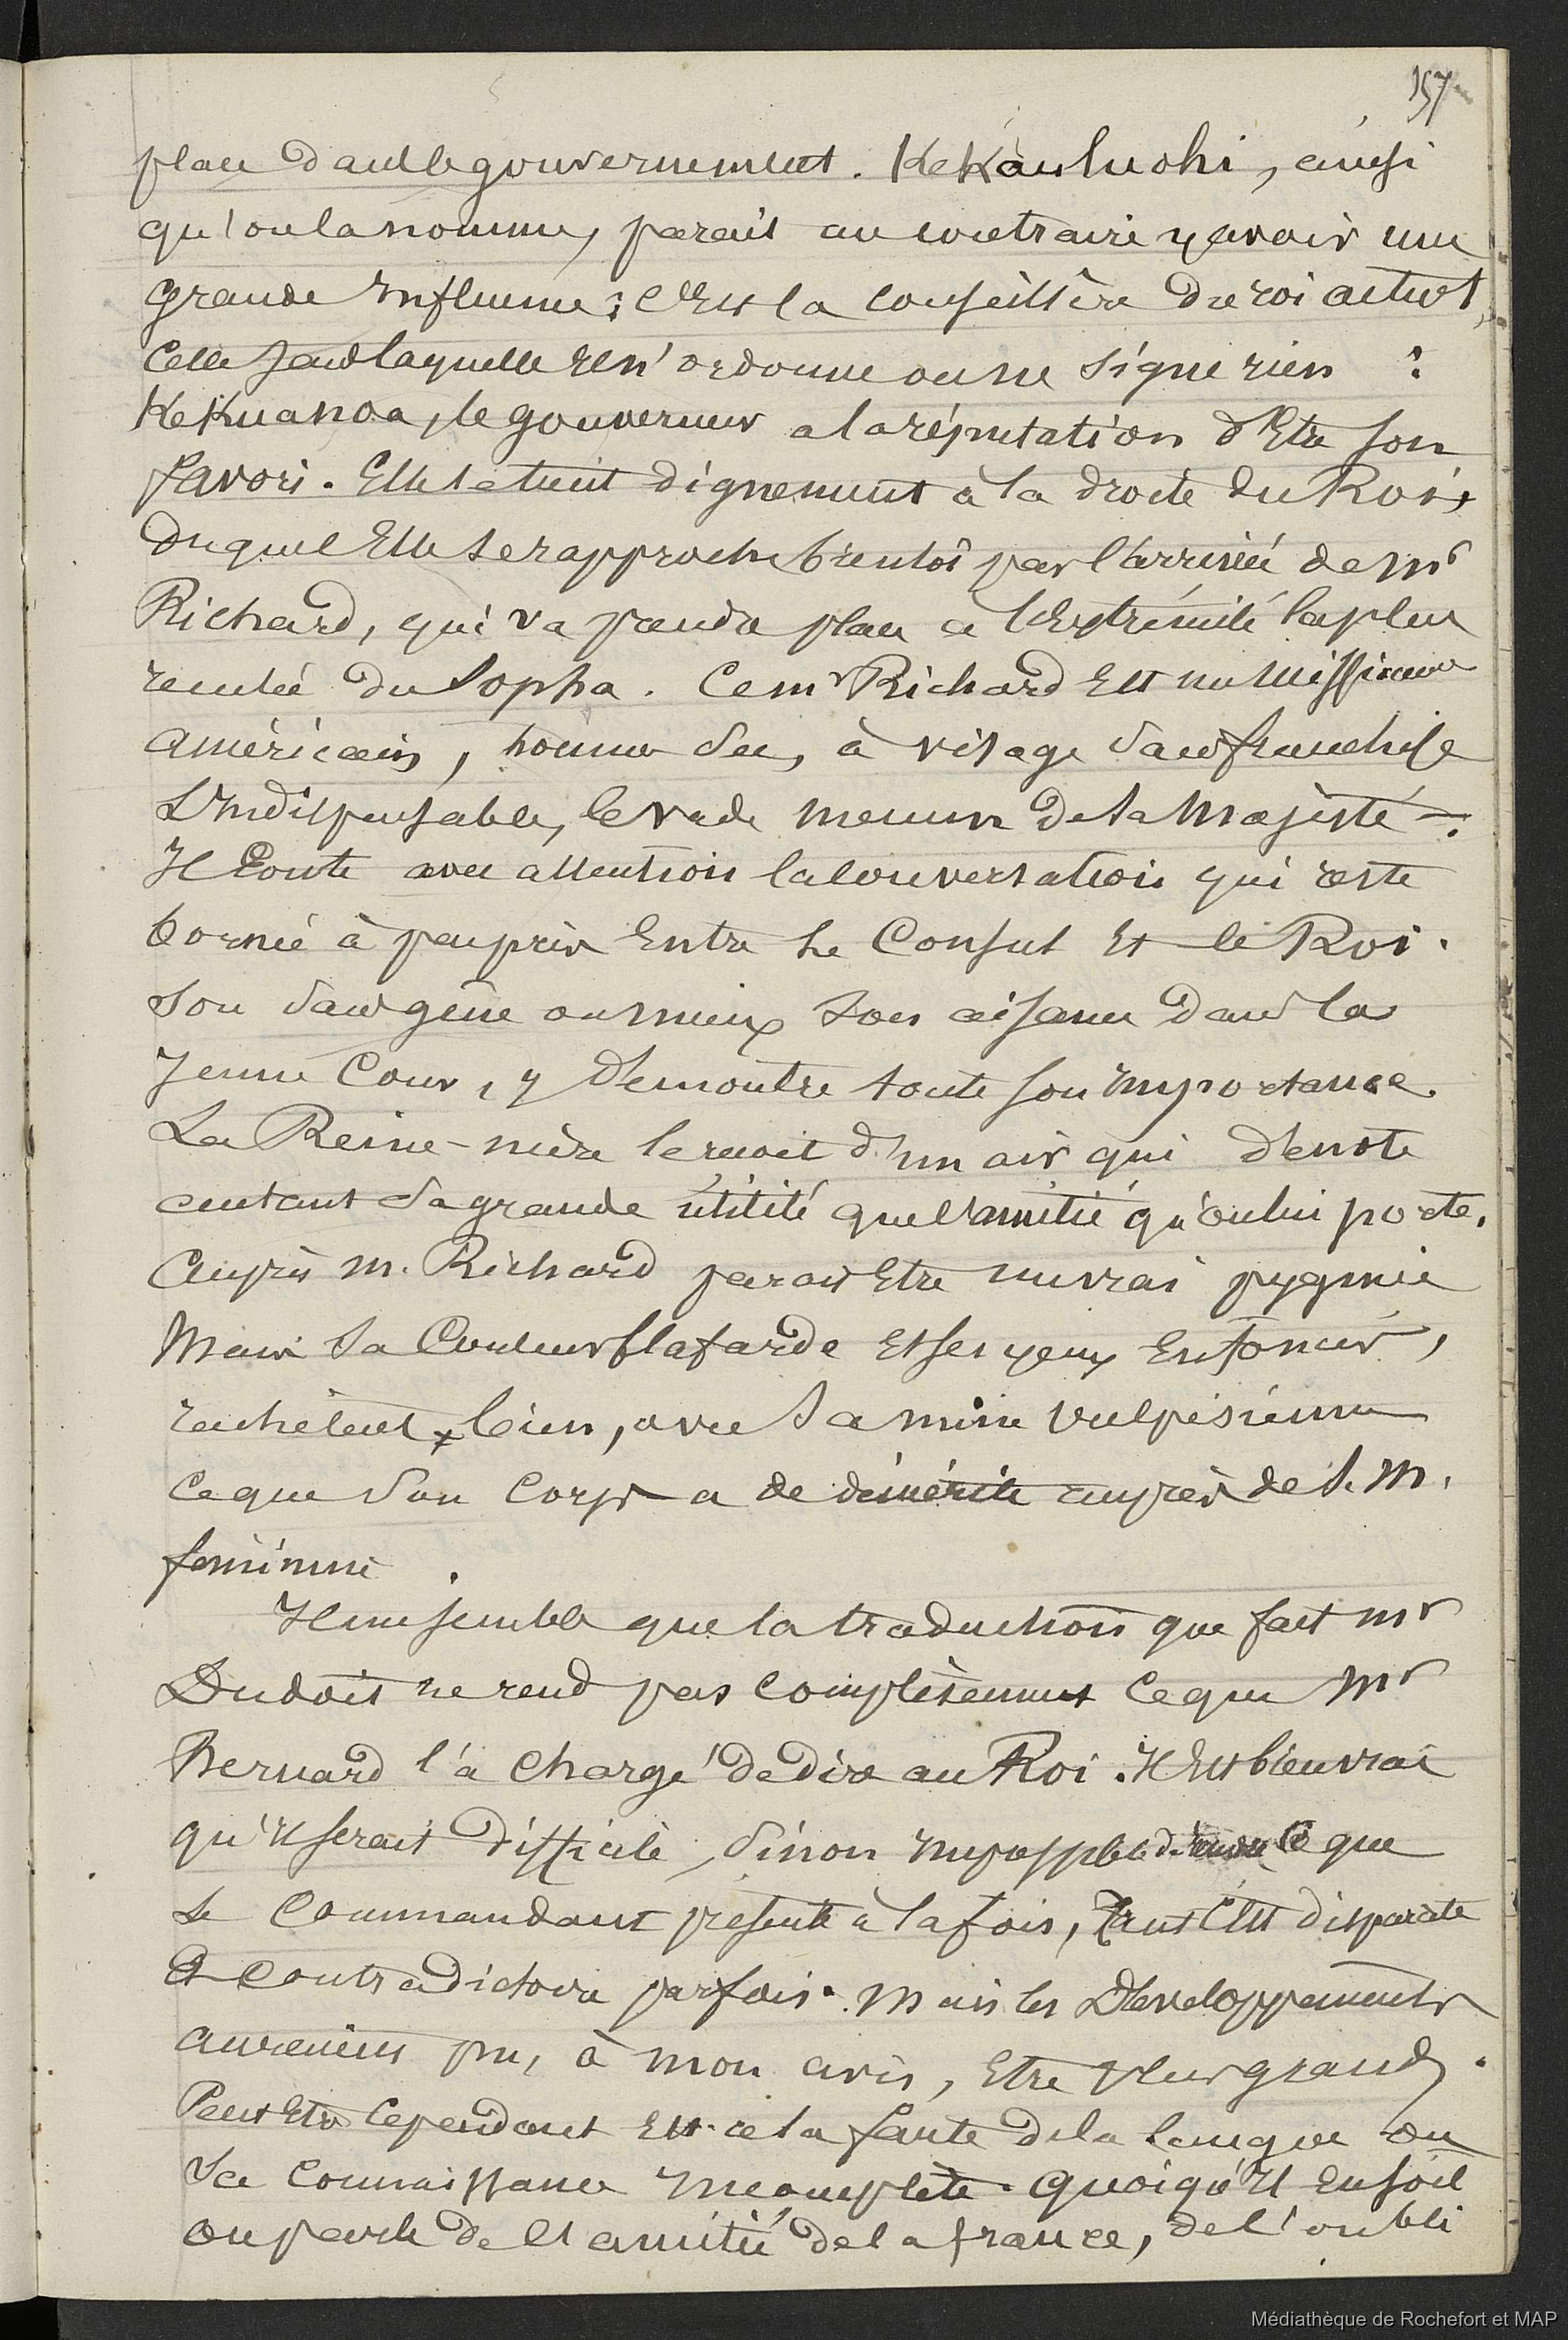 157
place dans le gouvernement. Kekauluohi, ainsi
qu'on la nomme, parait au contraire y avoir une
grande influence; c'est la conseillère du roi actuel,
celle sans laquelle il n'ordonne ou ne signe rien :
Kekuanoa, le gouverneur a la réputation d'être son
favori. Elle se tient dignement à la droite du Roi,
duquel Elle se rapproche bientôt par l'arrivée de Mr
Richard, qui va prendre place à l'extrémité la plus
reculée du Sopha. Ce mr Richard est un missionnaire
américain, homme sec, à visage sans franchise
L'indispensable, le vade mecum de sa Majesté.
Il écoute avec attention la conversation qui reste
bornée à peu près entre le Consul et le Roi.
Son sans gêne ou mieux son aisance dans la
jeune Cour, y démontre toute son importance.
La Reine-mère le reçoit d'un air qui dénote
autant sa grande utilité que l'amitié qu'on lui porte.
Auprès m. Richard parait être un vrai pygmée
Mais sa Couleur blafarde et ses yeux enfoncés,
rachètent bien, avec sa mine vulpisienne
ce que son corps a de démérite auprès de S. M.
féminine.
Il me semble que la traduction que fait mr
Dudoit ne rend pas complètement ce que Mr
Bernard l'a chargé de dire au Roi. Il est bien vrai
qu'il serait difficile, sinon impossible de rendre ce que
le Commandant présente à la fois, tant c'est disparate
et contradictoire parfois. Mais les développements
auraient pu, à mon avis, être plus grands.
Peut être cependant est-ce la faute de la langue ou
sa connaissance incomplète. Quoiqu'il en soit
on parle de l'amitié de la france, de l'oubli
Médiathèque de Rochefort et MAP